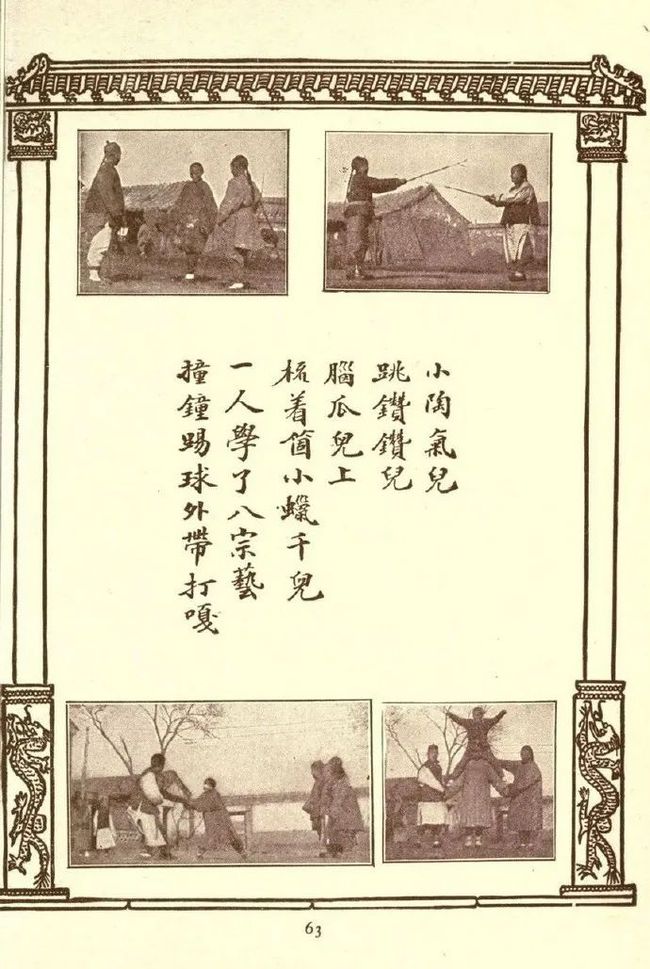 小陶氣兒
跳鑽鑽兒
腦瓜兒上
梳着箇小蠟千兒
一人學了八宗藝
撞鐘踢球外帶打嘎
63